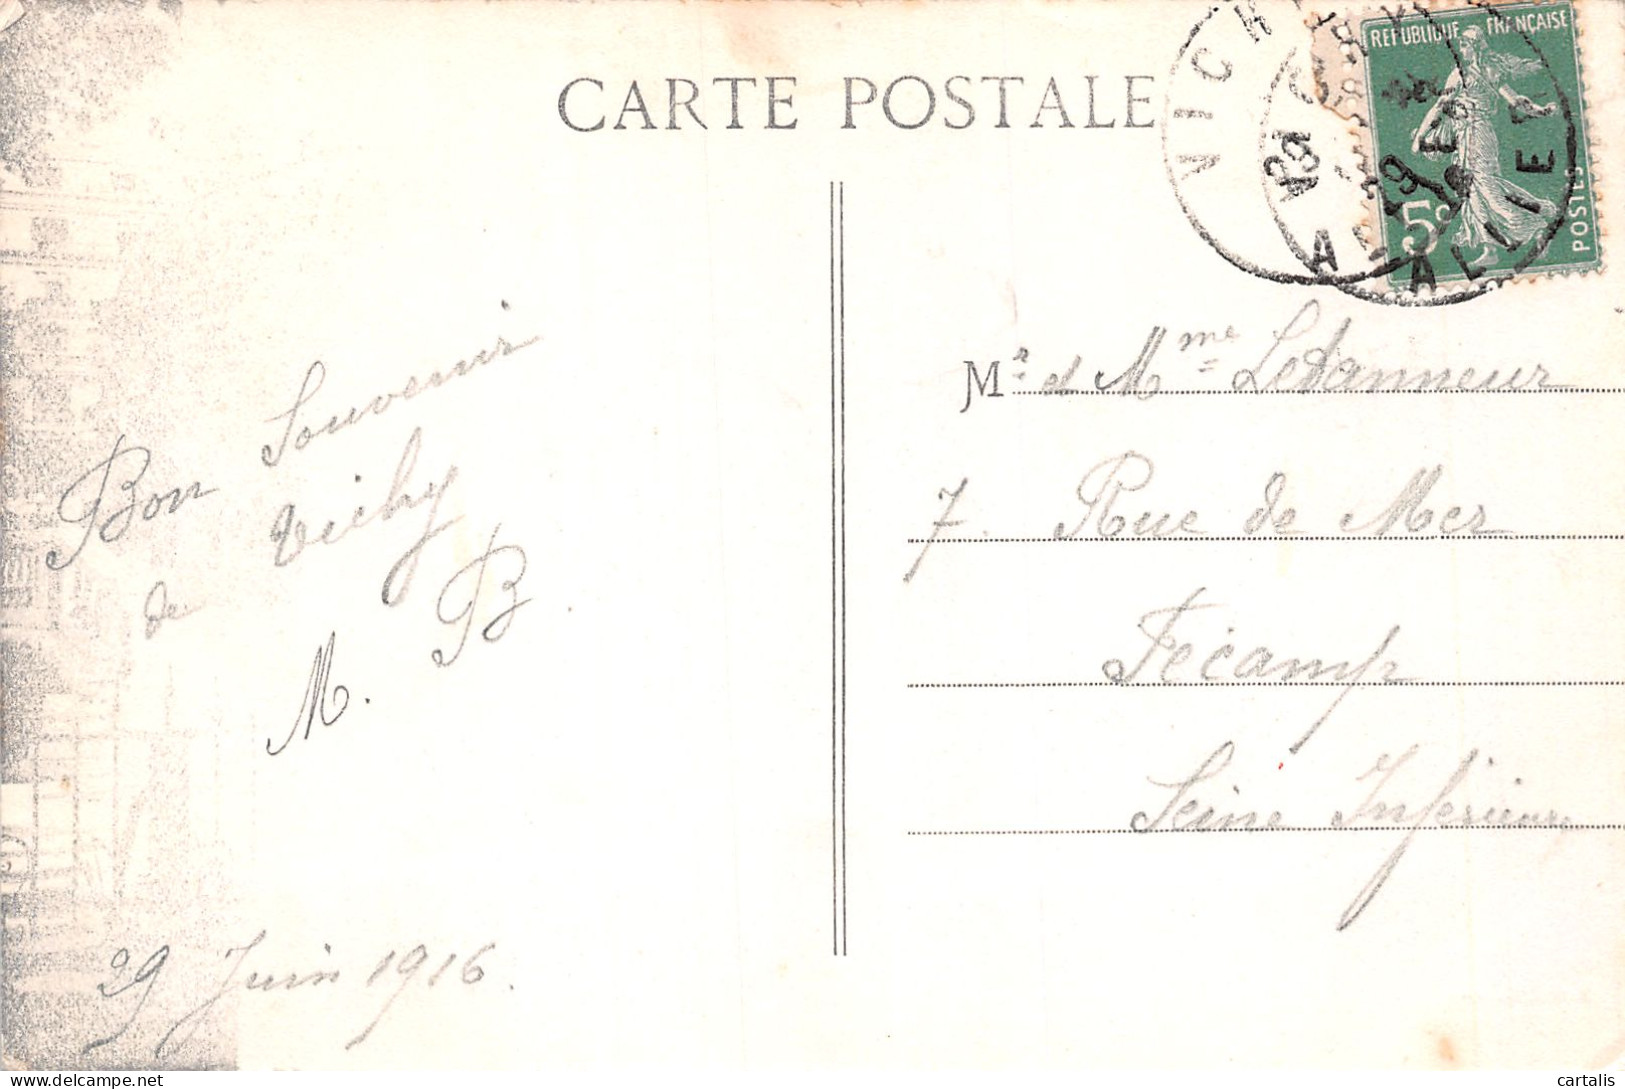 CARTE POSTALE
VICHY
ALLIER
REPUBLIQUE FRANÇAISE
5c
POSTES
Bon Souvenir
de Vichy
M. B.
29 Juin 1916.
Mr et Mme LeTanneur
7. Rue de Mer
Fecamp
Seine Inférieure
cartalis